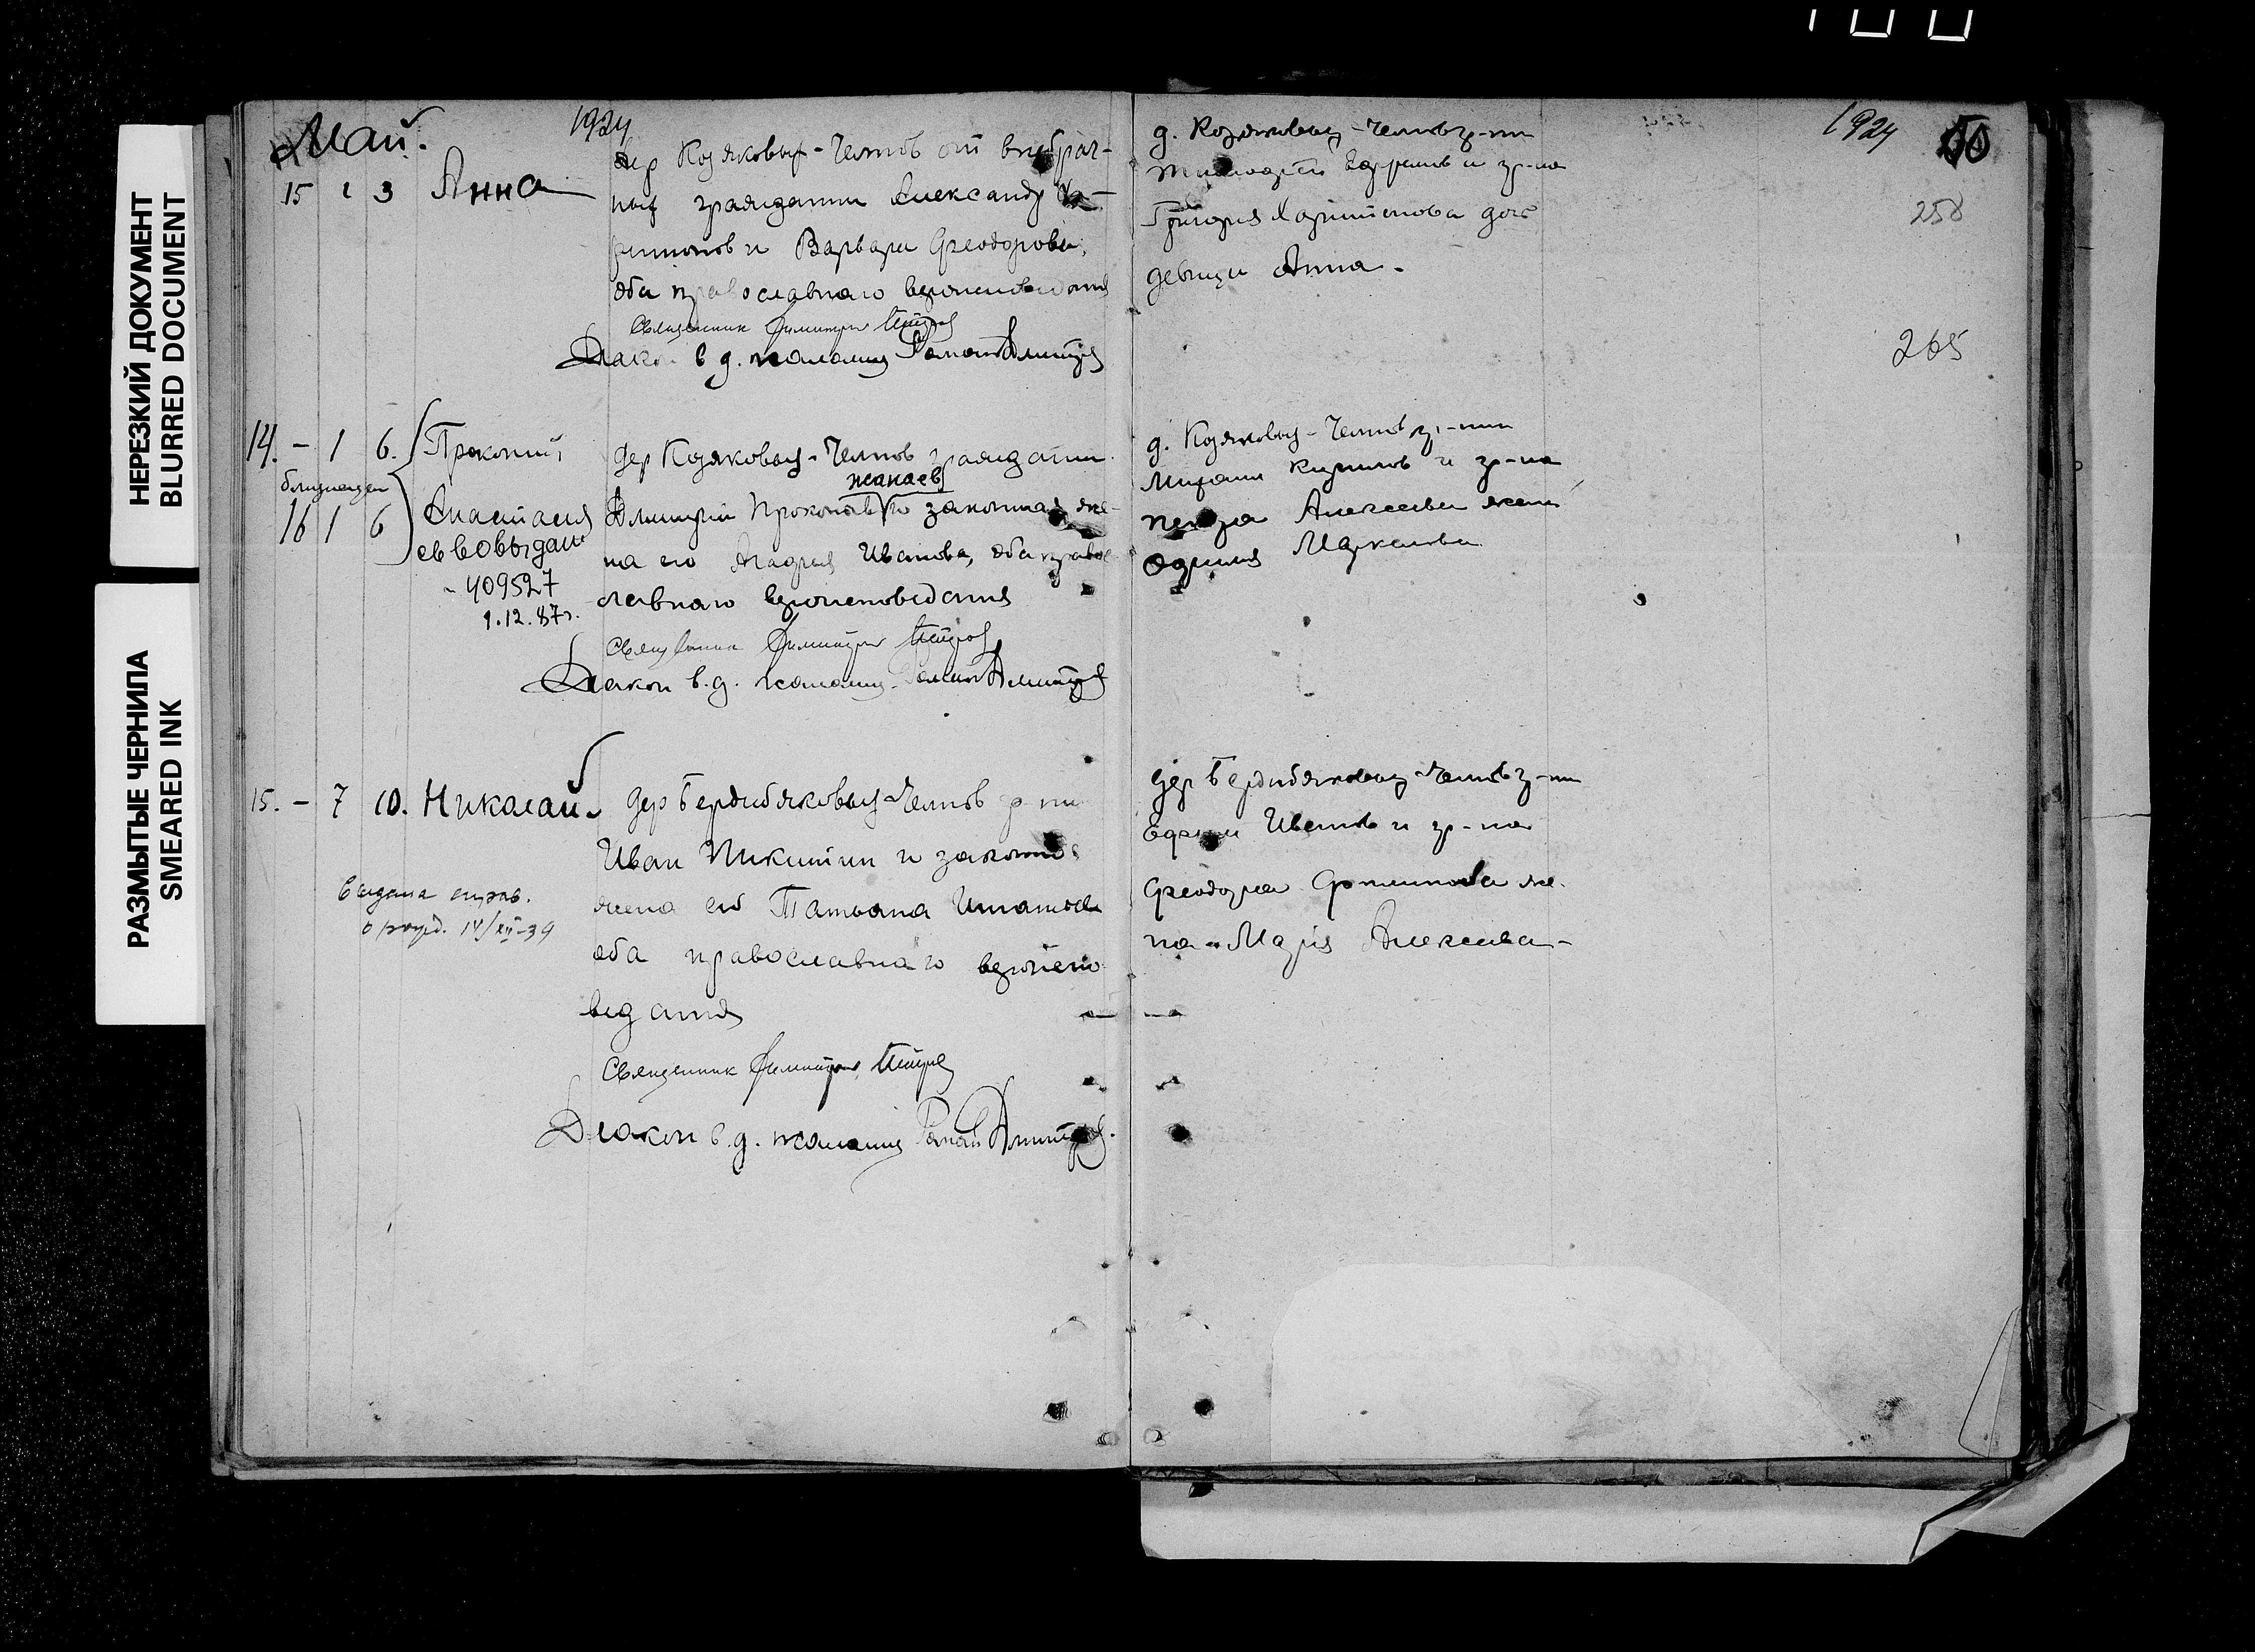 НЕРЕЗКИЙ ДОКУМЕНТ
BLURRED DOCUMENT
РАЗМЫТЫЕ ЧЕРНИЛА
SMEARED INK
Май.
1924
15 1 3 Анна
дер Козяковых-Челнов от внебрач-
ных граждании Александр
и Варвары Феодорова,
оба православнаго вероисповедания
Священник Димитрий Петров
Диакон в д. псаломщ Роман Дмитрев
14. - 1 6. Прокопий,
близнецы
16 1 6 Анастасия
св во выдан
409527
1.12.87г.
дер Козяковых-Челнов граждании
Дмитрий Прокопьев и законная же-
на его Агафия Иванова, оба правос-
лавнаго вероисповедания
Священник Димитрий Петров
Диакон в.д. псаломщ. Роман Дмитрев
15. - 7 10. Николай
Выдана справ.
о рожд. 14/XII-39
дер Бердибяковых-Челнов гр-ни
Иван Никитин и законная
жена его Татьяна Игнатьева
оба православнаго вероиспо-
ведания
Священник Димитрий Петров
Диакон в.д. псаломщ Роман Дмитрев.
1924
50
258
265
д. Козяковых-Челнов гр-ин
Ефремов и гр-на
Григория Харитонова дочь
девица Анна.
д. Козяковых-Челнов гр-нин
Кирилов и гр-на
Алексеева жена
Маркелова
дер Бердибяковых-Челнов гр-ин
Иванов и гр-на
Феодора же-
на Мария Алексеева